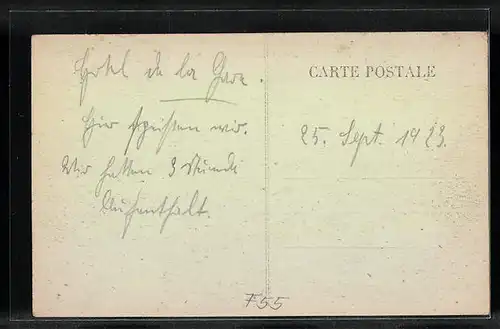 Hotel de la Gare.
Hier speisten wir.
Wir hatten 3 Stunden
Aufenthalt.
CARTE POSTALE
25. Sept. 1923.
F55